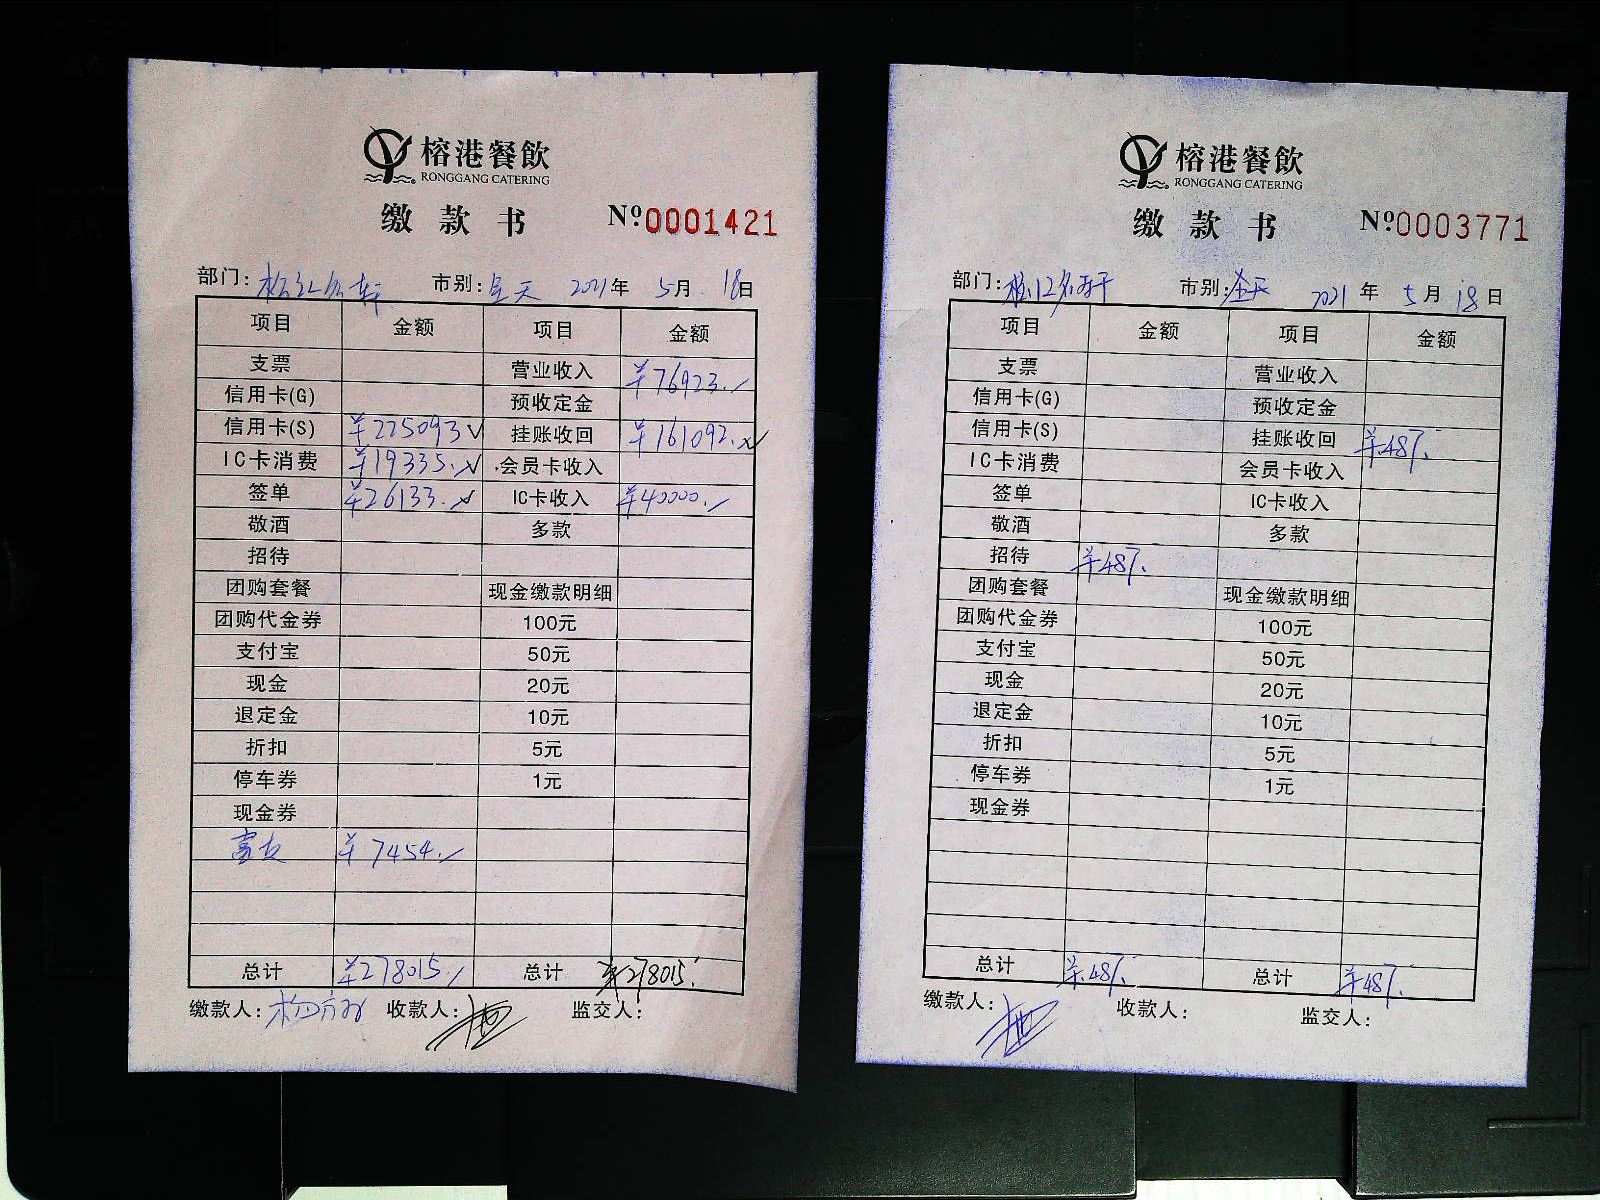 榕港餐飲
RONGGANG CATERING
缴款书 Nº.0001421
部门: 市别:全天 2021年 5月 18日
项目 金额 项目 金额
支票 营业收入 ¥76923.
信用卡(G) 预收定金
信用卡(S) ¥225093 挂账收回 ¥161092.
IC卡消费 ¥19335. 会员卡收入
签单 ¥26133. IC卡收入 ¥40000.
敬酒 多款
招待
团购套餐 现金缴款明细
团购代金券 100元
支付宝 50元
现金 20元
退定金 10元
折扣 5元
停车券 1元
现金券
富友 ¥7454.
总计 ¥278015. 总计 ¥278015.
缴款人: 收款人: 监交人:
榕港餐飲
RONGGANG CATERING
缴款书 Nº.0003771
部门: 市别:全天 2021年 5月 18日
项目 金额 项目 金额
支票 营业收入
信用卡(G) 预收定金
信用卡(S) 挂账收回 ¥487.
IC卡消费 会员卡收入
签单 IC卡收入
敬酒 多款
招待 ¥487.
团购套餐 现金缴款明细
团购代金券 100元
支付宝 50元
现金 20元
退定金 10元
折扣 5元
停车券 1元
现金券
总计 ¥487. 总计 ¥487.
缴款人: 收款人: 监交人: